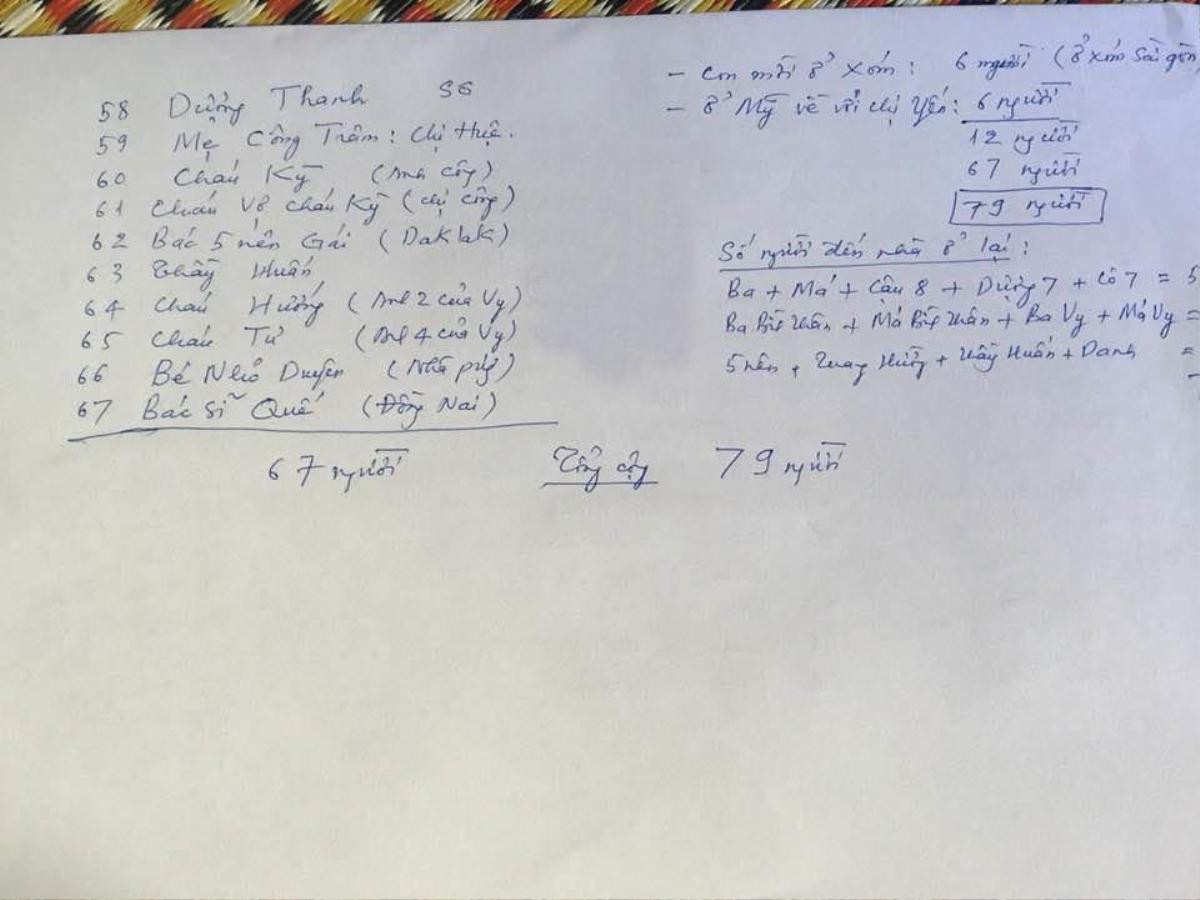 58 Dượng Thanh SG
59 Mẹ Công Trâm: Chị Huệ.
60 Cháu Kỳ (Anh công)
61 Cháu Vợ cháu Kỳ (chị công)
62 Bác 5 nên Gái (DakLak)
63 Thầy Huấn
64 Cháu Hướng (Anh 2 của Vy)
65 Cháu Tư (Anh 4 của Vy)
66 Bé Nhỏ Duyên (Nhà
67 Bác Sĩ Quế (Đồng Nai)
67 người
Tổng cộng 79 người
- con mời ở xóm: 6 người (ở xóm Sài gòn
- ở Mỹ về với chị Yến: 6 người
12 người
67 người
79 người
Số người đến nhà ở lại:
Ba + Má + Cậu 8 + Dượng 7 + Cô 7 = 5
Ba + Má + Ba Vy + Má Vy =
5 nên + + Thầy Huấn + Danh =